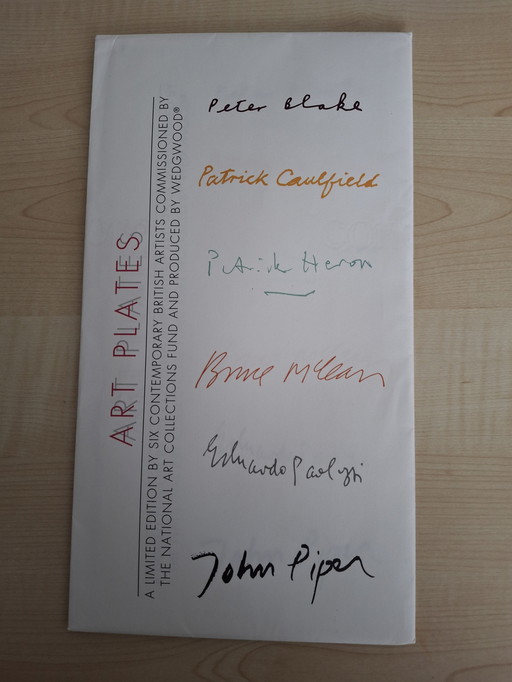 ART PLATES
A LIMITED EDITION BY SIX CONTEMPORARY BRITISH ARTISTS COMMISSIONED BY
THE NATIONAL ART COLLECTIONS FUND AND PRODUCED BY WEDGWOOD®
Peter Blake
Patrick Caulfield
Patrick Heron
Bruce McLean
Eduardo Paolozzi
John Piper